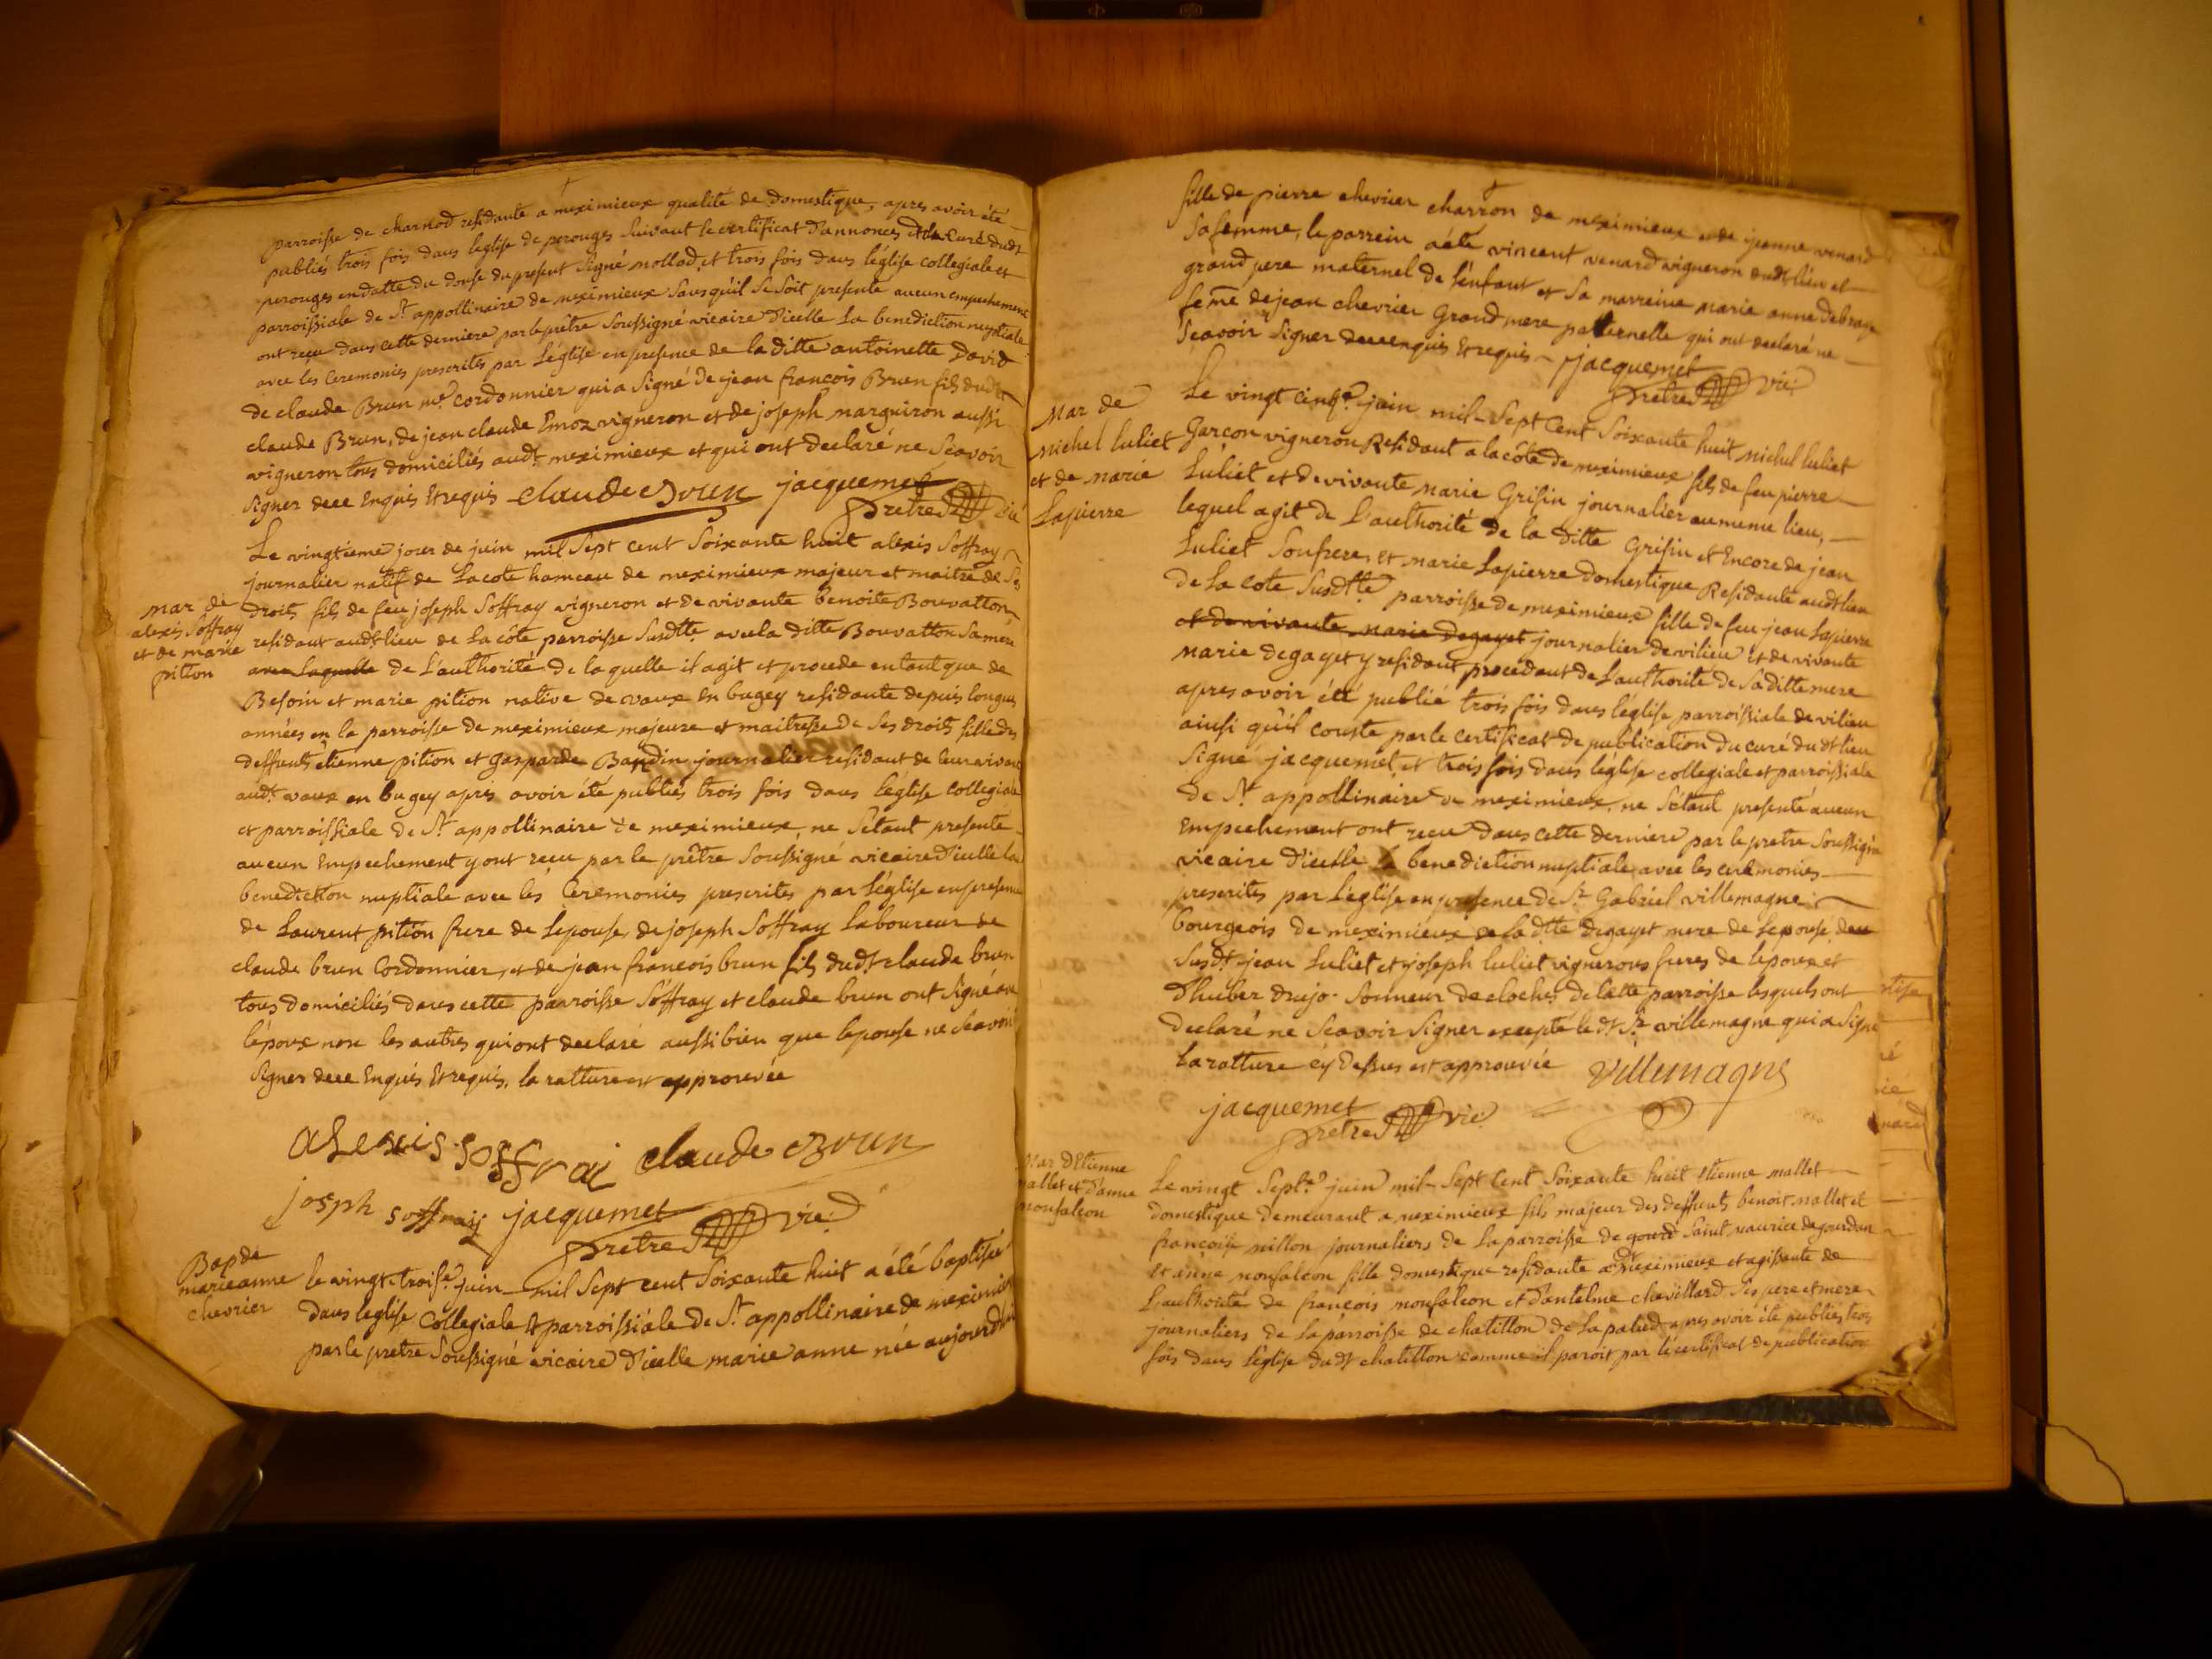 parroisse de charnod residante a meximieux qualité de domestique, apres avoir été
publiés trois fois dans l'eglise de perouges suivant le certificat d'annonces du curé dudt
perouges en datte du douse du present signé mollad, et trois fois dans l'église collegiale et
parroissiale de St appollinaire de meximieux sans qu'il se soit presenté aucun empechement
ont reçu dans cette derniere par le prêtre soussigné vicaire d'icelle la benediction nuptiale
avec les ceremonies prescrites par l'église en presence de la ditte antoinette David
de claude Brun me cordonnier qui a signé de jean françois Brun fils dudt
claude Brun, de jean claude Emoz vigneron et de joseph marguiron aussi
vigneron tous domiciliés audt meximieux et qui ont declaré ne scavoir
signer de ce enquis et requis claude Brun jacquemet
pretre vic
Le vingtieme jour de juin mil sept cent soixante huit alexis soffray
journalier natif de la cote hameau de meximieux majeur et maitre de ses
mar de
alexis soffray
et de marie
pition
droits fils de feu joseph soffray vigneron et de vivante benoite Bouvatton
residant audt lieu de la côte parroisse susdtte avec la ditte Bouvatton sa mere
avec laquelle de l'authorité de la quelle il agit et procede en tant que de
Besoin et marie pition native de vaux en bugey residante depuis longues
années en la parroisse de meximieux majeure et maitresse de ses droits fille des
deffunts etienne pition et gasparde Baudin journalier residant de leur vivant
audt vaux en bugey apres avoir été publiés trois fois dans l'église collegiale
et parroissiale de St appollinaire de meximieux, ne s'étant presenté
aucun empechement y ont reçu par le prêtre soussigné vicaire d'icelle la
benediction nuptiale avec les ceremonies prescrites par l'église en presence
de Laurent pition frere de l'epouse, de joseph soffray laboureur de
claude brun cordonnier, et de jean francois brun fils dudt claude brun
tous domiciliés dans cette parroisse soffray et claude brun ont signé avec
l'époux non les autres qui ont declaré aussi bien que l'epouse ne scavoir
signer de ce enquis et requis, la ratture est approuvée
alexis soffrai claude Brun
joseph soffraij jacquemet
pretre vic
Bap de
marie anne
chevrier
le vingt troise juin mil sept cent soixante huit a été baptisée
dans l'eglise collegiale et parroissiale de St appollinaire de meximieux
par le pretre soussigné vicaire d'icelle marie anne née aujourd'hui
fille de pierre chevrier charron de meximieux et de jeanne venard
sa femme, le parrein a été vincent venard vigneron dudt lieu et
grand pere maternel de l'enfant et sa marreine marie anne debraye
feme de jean chevrier grand mere paternelle qui ont declaré ne
scavoir signer de ce enquis et requis jacquemet
pretre vic
mar de
michel luliet
et de marie
Lapierre
Le vingt cinqe juin mil sept cent soixante huit michel luliet
garcon vigneron residant a la côte de meximieux fils de feu pierre
Luliet et de vivante marie Grisin journalier au meme lieu,
lequel agit de l'authorité de la ditte Grisin et encore de jean
Luliet son frere, et marie Lapierre domestique residante audt lieu
de la cote susdtte parroisse de meximieux fille de feu jean Lapierre
et de vivante marie degayet journalier de vilieu et de vivante
marie degayet y residant procedant de l'authorité de sa ditte mere
apres avoir été publié trois fois dans l'église parroissiale de vilieu
ainsi qu'il conste par le certificat de publication du curé dudt lieu
signé jacquemet, et trois fois dans l'église collegiale et parroissiale
de St appollinaire de meximieux, ne s'étant presenté aucun
empechement ont reçu dans cette derniere par le pretre soussigné
vicaire d'icelle la benediction nuptiale avec les ceremonies
prescrites par l'église en presence de Sr Gabriel villemagne
bourgeois de meximieux de la dtte degayet mere de l'epouse, des
susdt jean Luliet et joseph luliet vignerons freres de l'epoux et
d'huber drujo sonneur de cloches de cette parroisse lesquels ont
declaré ne scavoir signer excepté le dt Sr villemagne qui a signé
la ratture cy dessus est approuvée villemagne
jacquemet
pretre vic
mar d'Etienne
mallet et d'anne
monfalcon
Le vingt septe juin mil sept cent soixante huit etienne mallet
domestique demeurant a meximieux fils majeur des deffunts benoit mallet et
françoise millon journaliers de la parroisse de gourd saint maurice de gourdan
et anne monfalcon fille domestique residante a meximieux et agissante de
l'authorité de françois monfalcon et d'antelme chevillard ses pere et mere
journaliers de la parroisse de chatillon de la palud apres avoir été publiés trois
fois dans l'église dudt chatillon comme il paroit par le certificat de publication